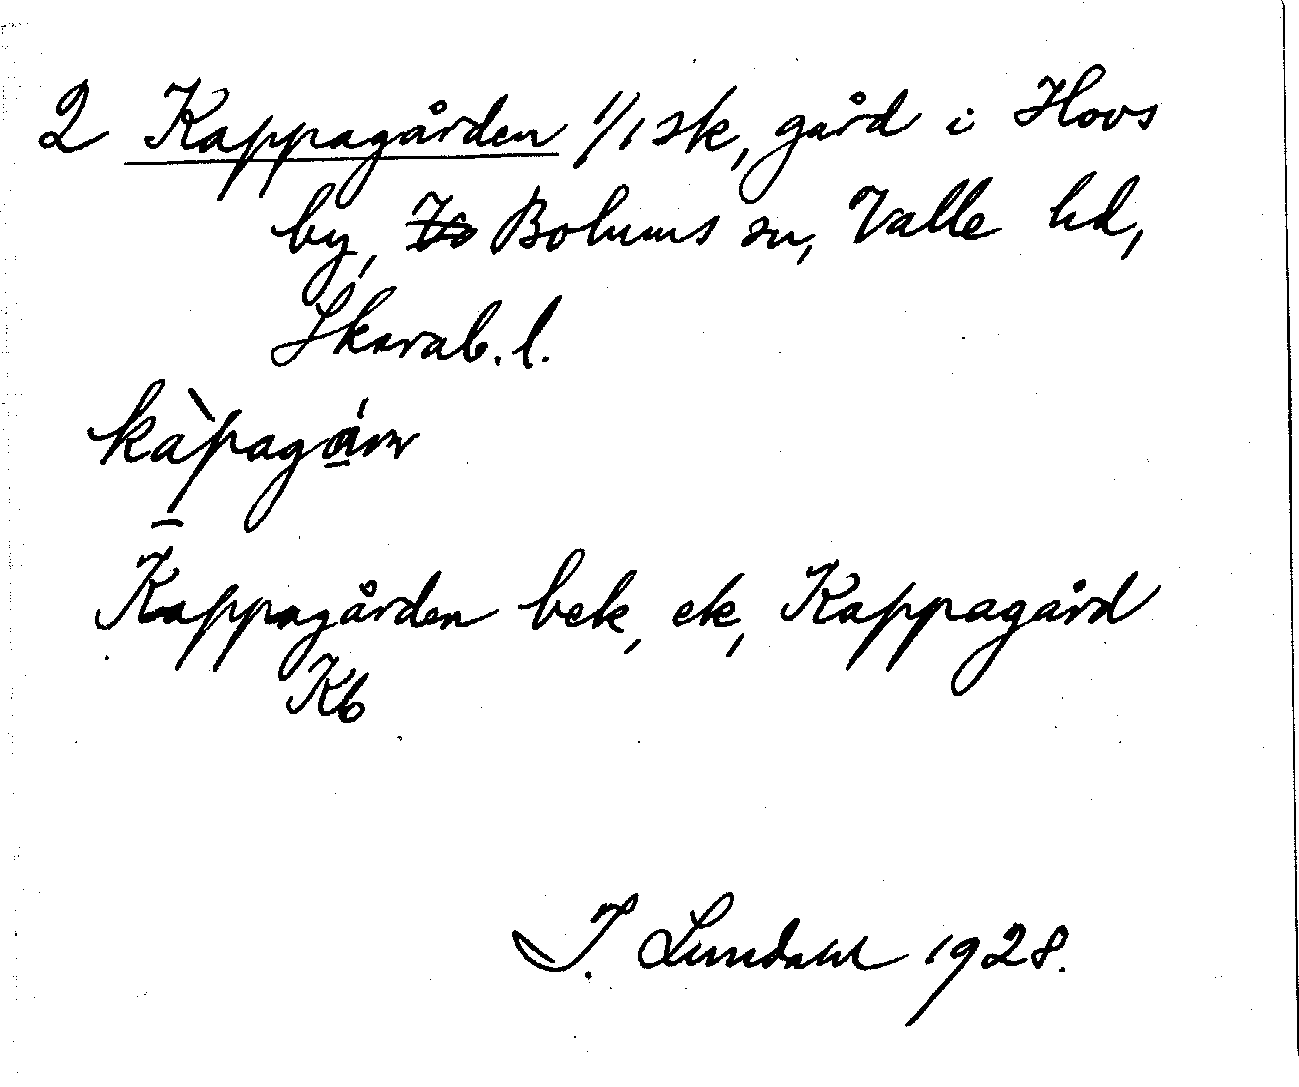 2 Kappagården 1/1 sk, gård i Hovs
by, Bolums sn, Valle hd,
Skarab. l.
Kappagården bek, ek, Kappagård
Kb
I. Lundahl 1928.